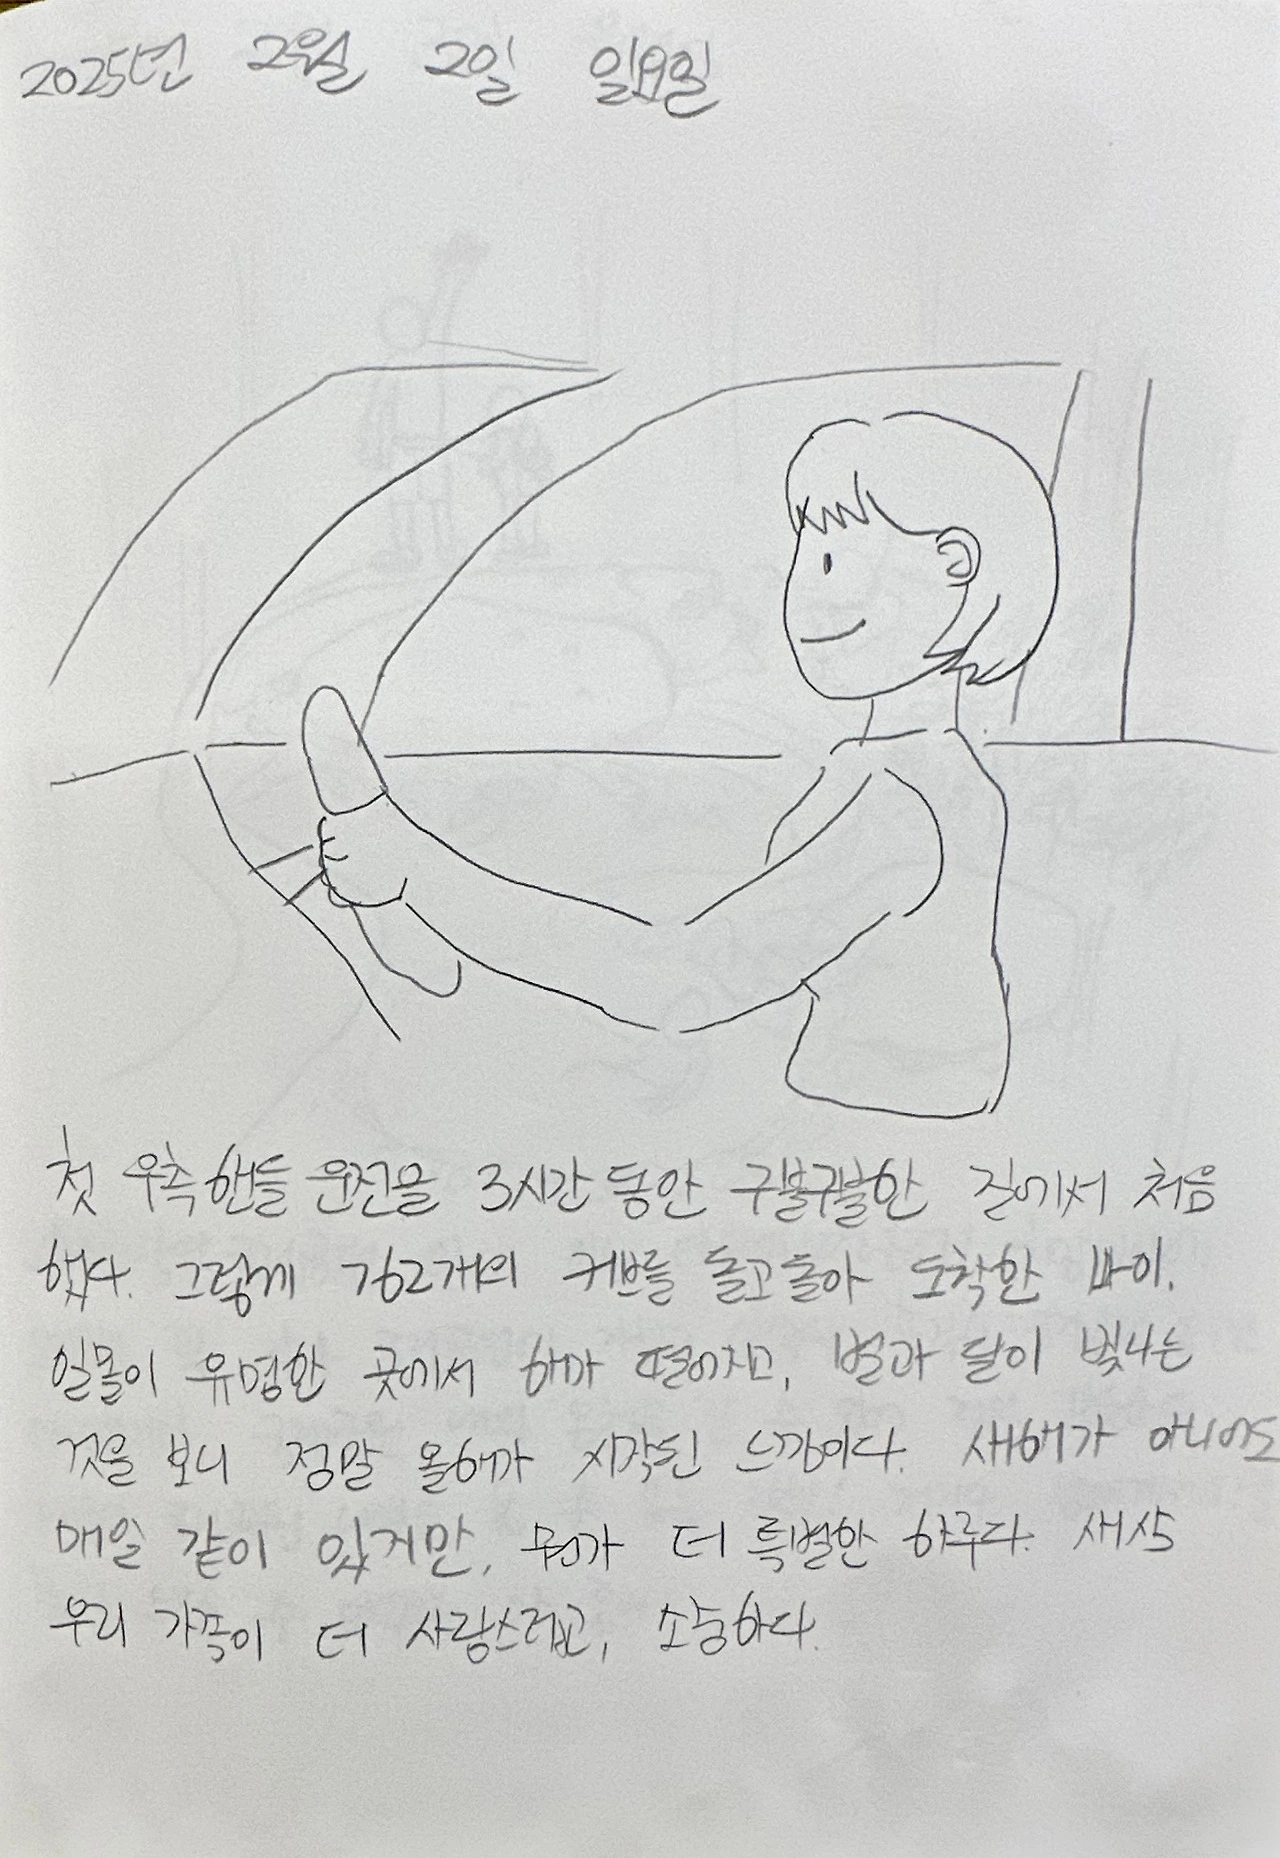 2025년 2월 2일 일요일
첫 우측 핸들 운전을 3시간 동안 구불구불한 길에서 처음
했다. 그렇게 762개의 커브를 돌고돌아 도착한 빠이.
일몰이 유명한 곳에서 해가 떨어지고, 별과 달이 빛나는
것을 보니 정말 올해가 시작된 느낌이다. 새해가 아니어도
매일 같이 있지만, 뭔가 더 특별한 하루다. 새삼
우리 가족이 더 사랑스럽고, 소중하다.